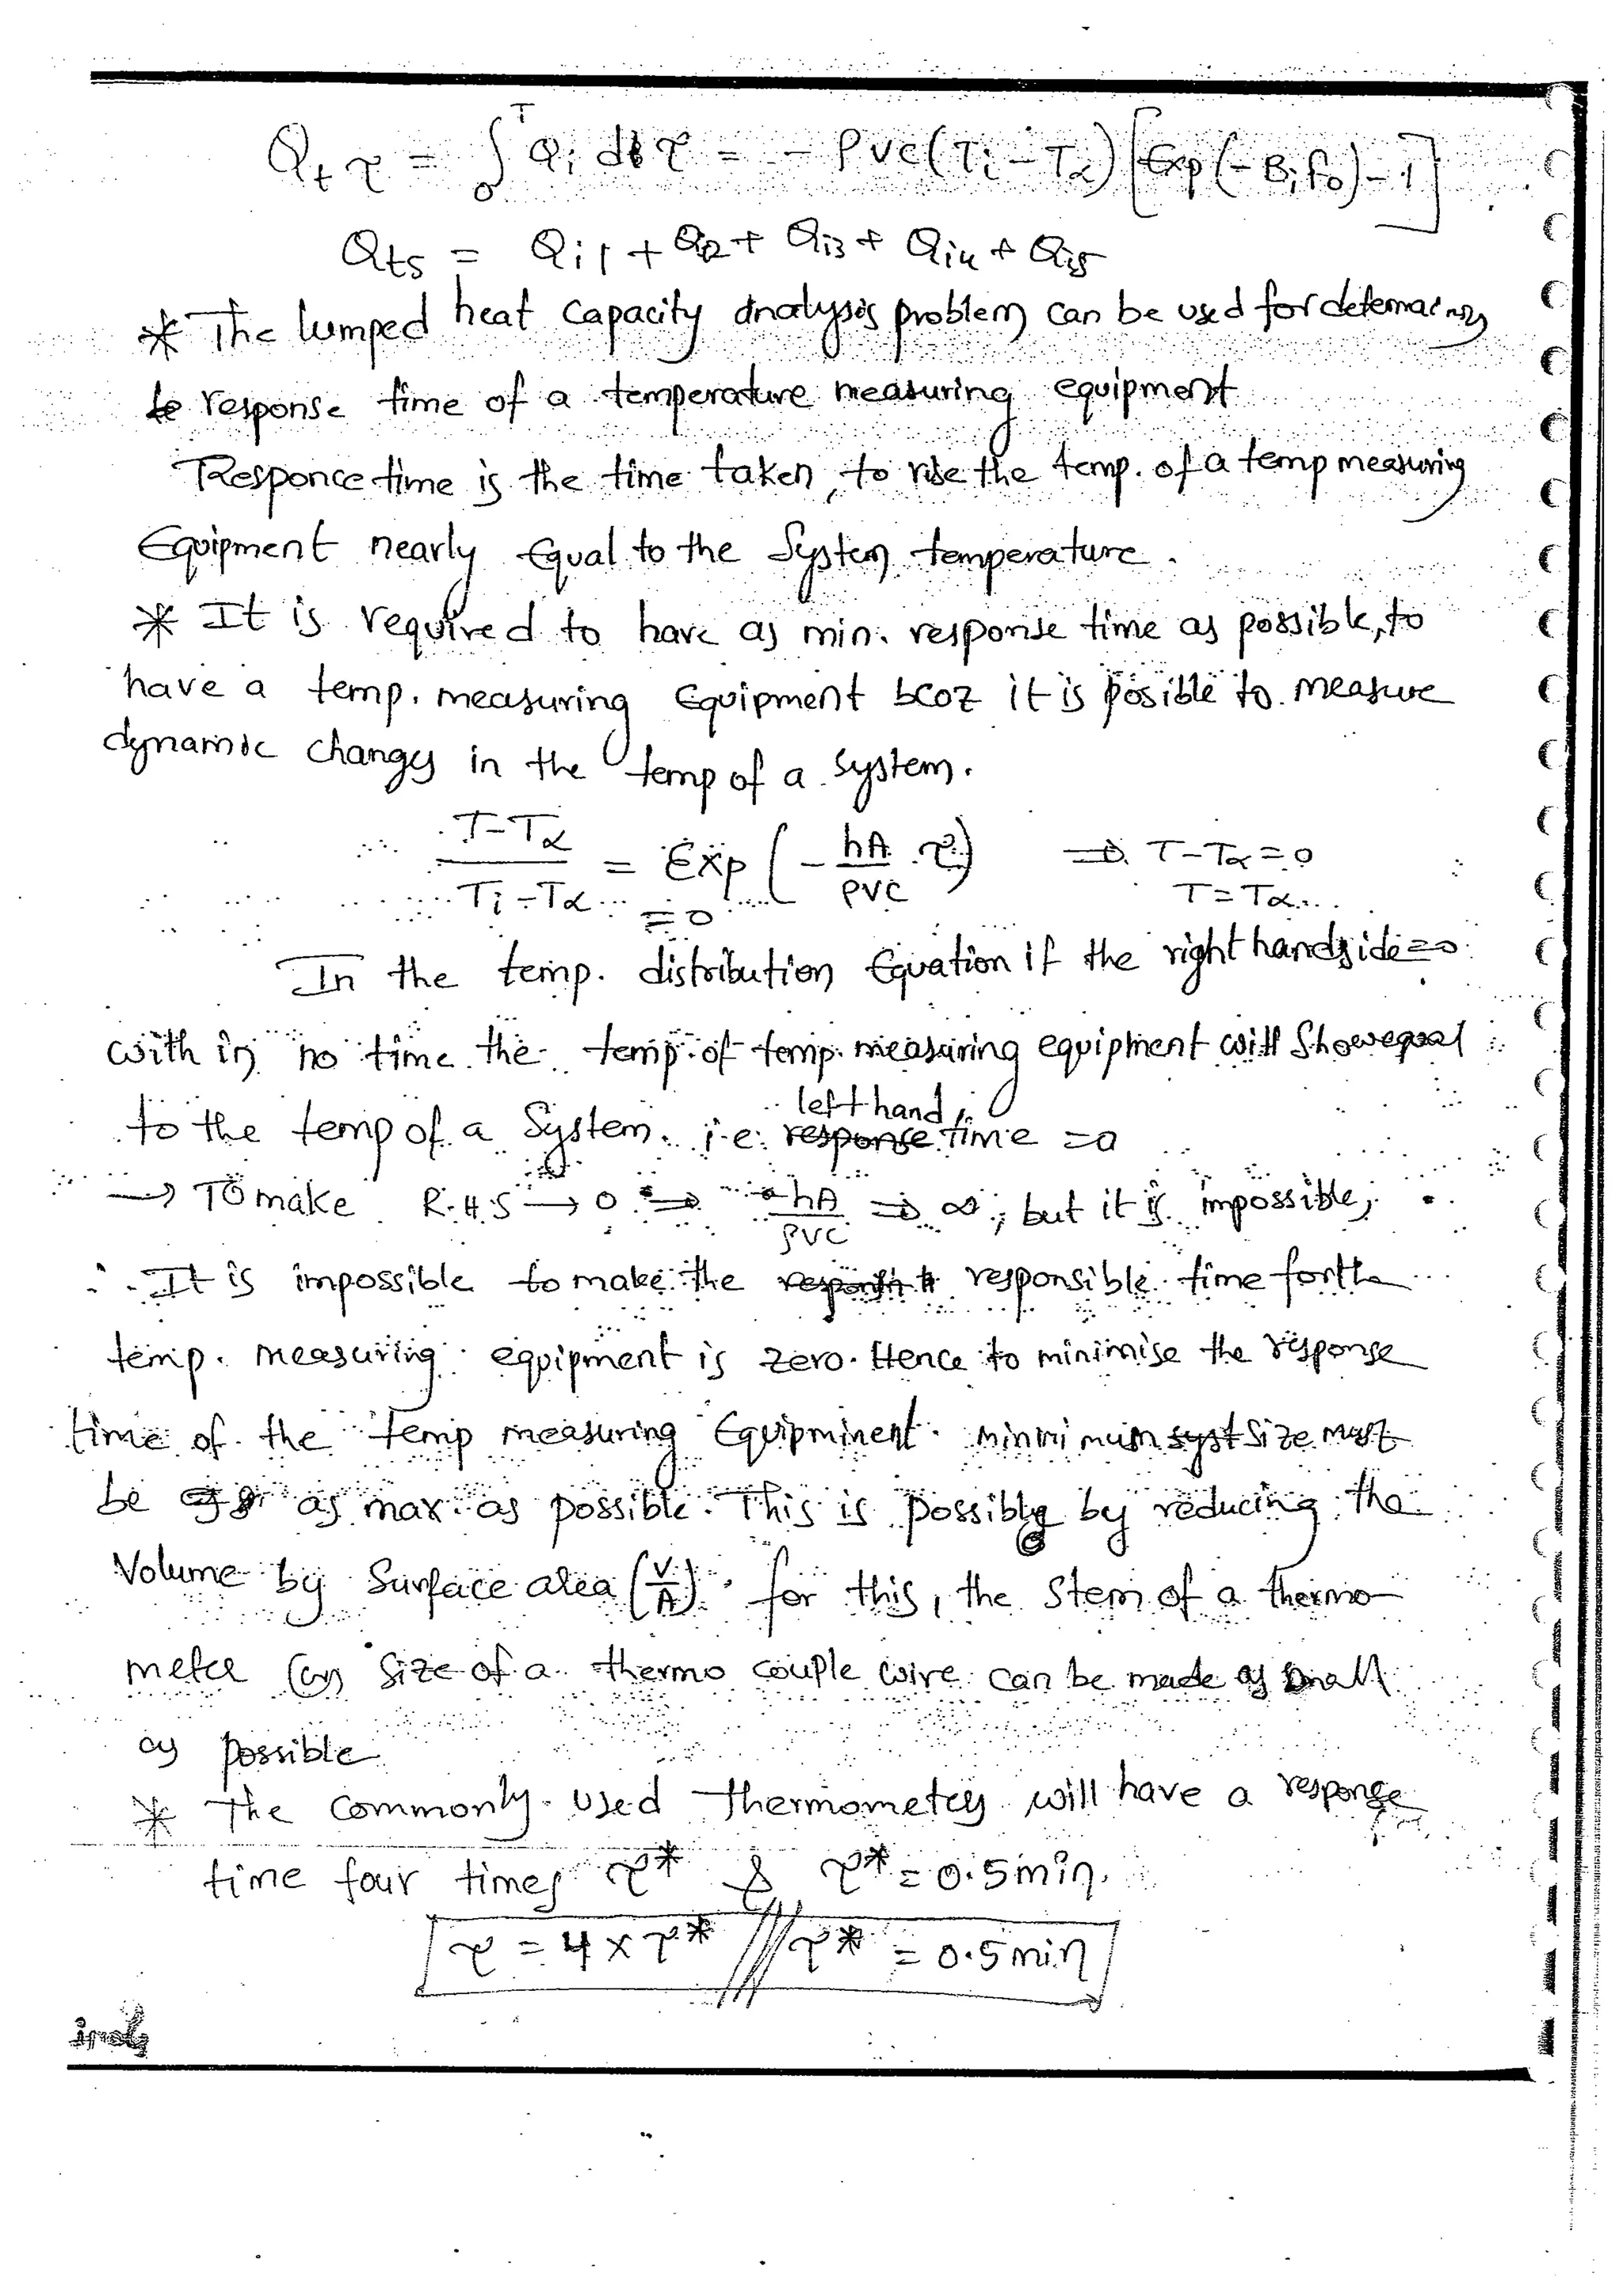 Qtτ = ∫₀^T Qi dτ = - ρVC(Ti - Tα)[Exp(-Bi fo) - 1]
Qt5 = Qi1 + Qi2 + Qi3 + Qi4 + Qi5
* The lumped heat capacity analysis problem can be used for
response time of a temperature measuring equipment
Responce time is the time taken, to rise the temp. of a temp measuring
Equipment nearly Equal to the System temperature.
* It is required to have as min. response time as possible, to
have a temp. measuring Equipment bcoz it is posible to measure
dynamic changes in the temp of a system.
(T-Tα)/(Ti-Tα) = Exp(-hA/ρVC · τ) ⇒ T-Tα=0
=0 T=Tα
In the temp. distribution Equation if the right hand side=0
with in no time the temp. of temp. measuring equipment will Show equal
to the temp of a System. i.e. left hand time =0
→ To make R.H.S → 0 ⇒ hA/ρVC ⇒ ∞; but it is impossible;
∴ It is impossible to make the responsible time for the
temp. measuring equipment is zero. Hence to minimise the response
time of the temp measuring Equipminent. minimimum size must
be as max. as possible. This is possible by reducing the
Volume by Surface area (V/A). for this, the Stem of a thermo
meter (or) size of a thermo couple wire can be made as small
as possible
* The commonly used thermometers will have a response
time four times τ* & τ* = 0.5min.
τ = 4 × τ* /// τ* = 0.5min